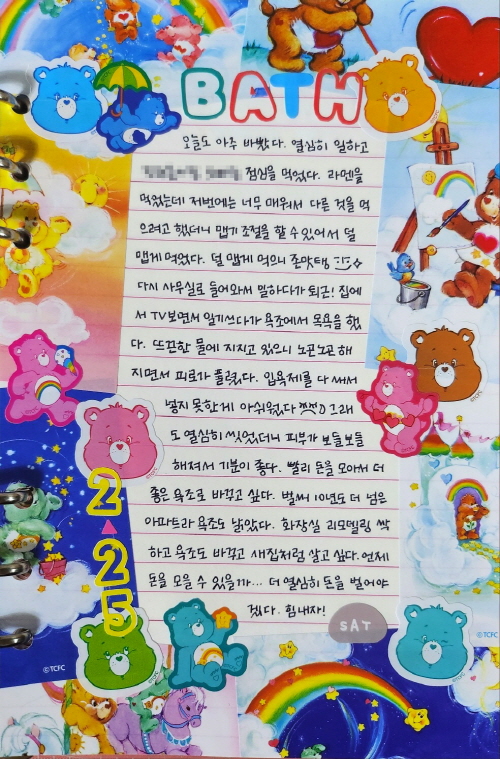 BATH
오늘도 아주 바빴다. 열심히 일하고
점심을 먹었다. 라멘을
먹었는데 저번에는 너무 매워서 다른 것을 먹
으려고 했더니 맵기 조절을 할 수 있어서 덜
맵게 먹었다. 덜 맵게 먹으니 존맛탱
다시 사무실로 들어와서 일하다가 퇴근! 집에
서 TV보면서 일기쓰다가 욕조에서 목욕을 했
다. 뜨끈한 물에 지지고 있으니 노곤노곤 해
지면서 피로가 풀렸다. 입욕제를 다 써서
넣지 못한게 아쉬웠다 쩝쩝 그래
도 열심히 씻었더니 피부가 보들보들
해져서 기분이 좋다. 빨리 돈을 모아서 더
좋은 욕조로 바꾸고 싶다. 벌써 10년도 더 넘은
아파트라 욕조도 낡았다. 화장실 리모델링 싹
하고 욕조도 바꾸고 새집처럼 살고 싶다. 언제
돈을 모을 수 있을까... 더 열심히 돈을 벌어야
겠다. 힘내자!
2
25
SAT
©TCFC
©TCFC